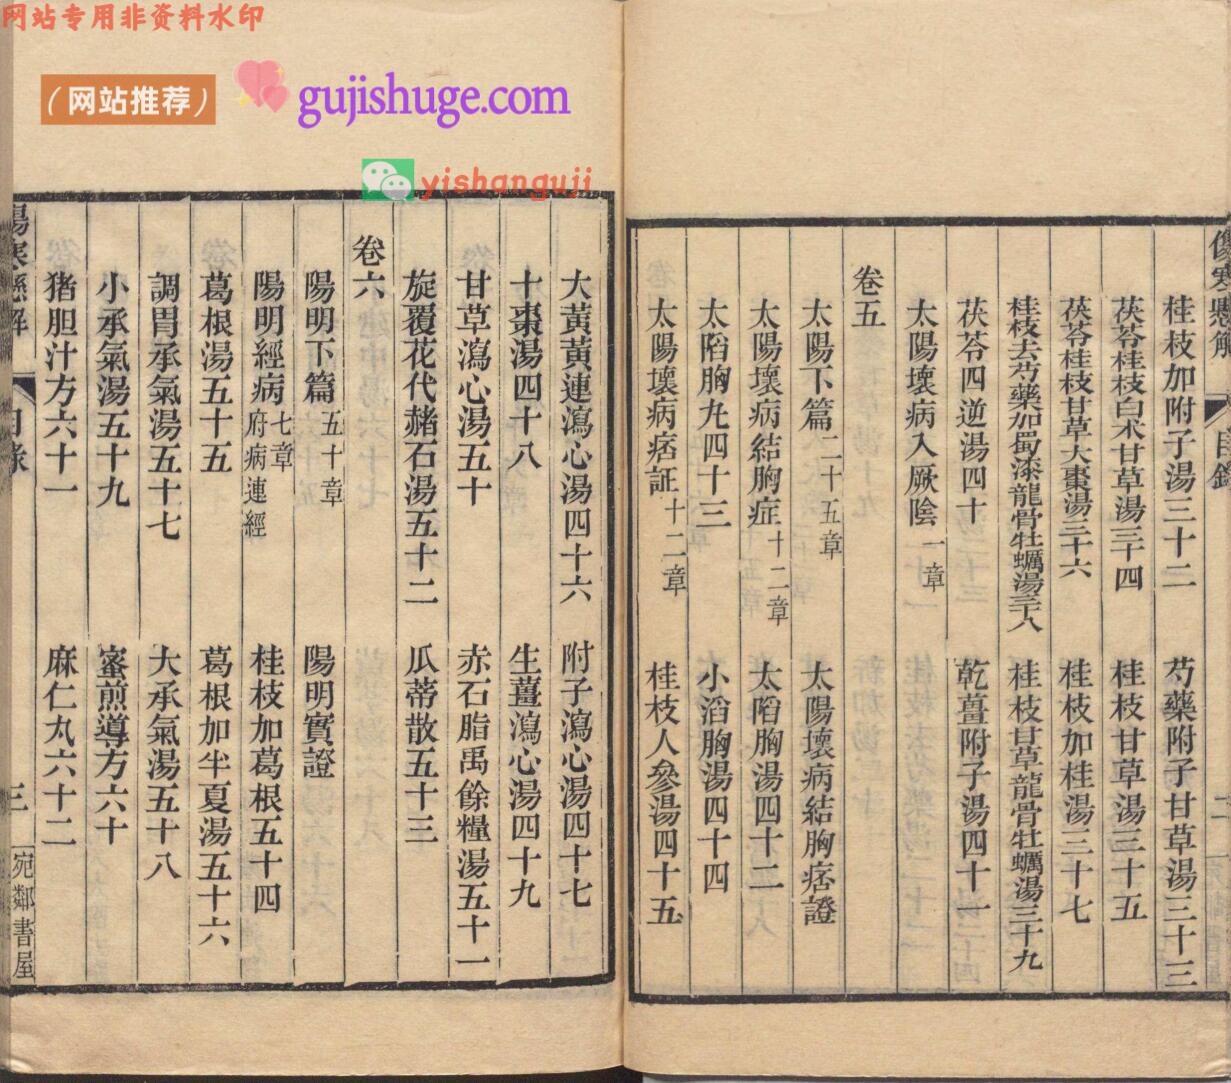 网站专用非资料水印
（网站推荐）
gujishuge.com
yishanguji
傷寒懸解 目錄 二
桂枝加附子湯三十二 芍藥附子甘草湯三十三
茯苓桂枝白术甘草湯三十四 桂枝甘草湯三十五
茯苓桂枝甘草大棗湯三十六 桂枝加桂湯三十七
桂枝去芍藥加蜀漆龍骨牡蠣湯三十八 桂枝甘草龍骨牡蠣湯三十九
茯苓四逆湯四十 乾薑附子湯四十一
太陽壞病入厥陰一章
卷五
太陽下篇二十五章 太陽壞病結胸痞證
太陽壞病結胸症十二章 大陷胸湯四十二
大陷胸丸四十三 小滔胸湯四十四
太陽壞病痞証十二章 桂枝人參湯四十五
大黃黃連瀉心湯四十六 附子瀉心湯四十七
十棗湯四十八 生薑瀉心湯四十九
甘草瀉心湯五十 赤石脂禹餘糧湯五十一
旋覆花代赭石湯五十二 瓜蒂散五十三
卷六
陽明下篇五十章 陽明實證
陽明經病七章府病連經 桂枝加葛根五十四
葛根湯五十五 葛根加半夏湯五十六
調胃承氣湯五十七 大承氣湯五十八
小承氣湯五十九 蜜煎導方六十
猪胆汁方六十一 麻仁丸六十二
傷寒懸解 目錄 三 宛鄰書屋